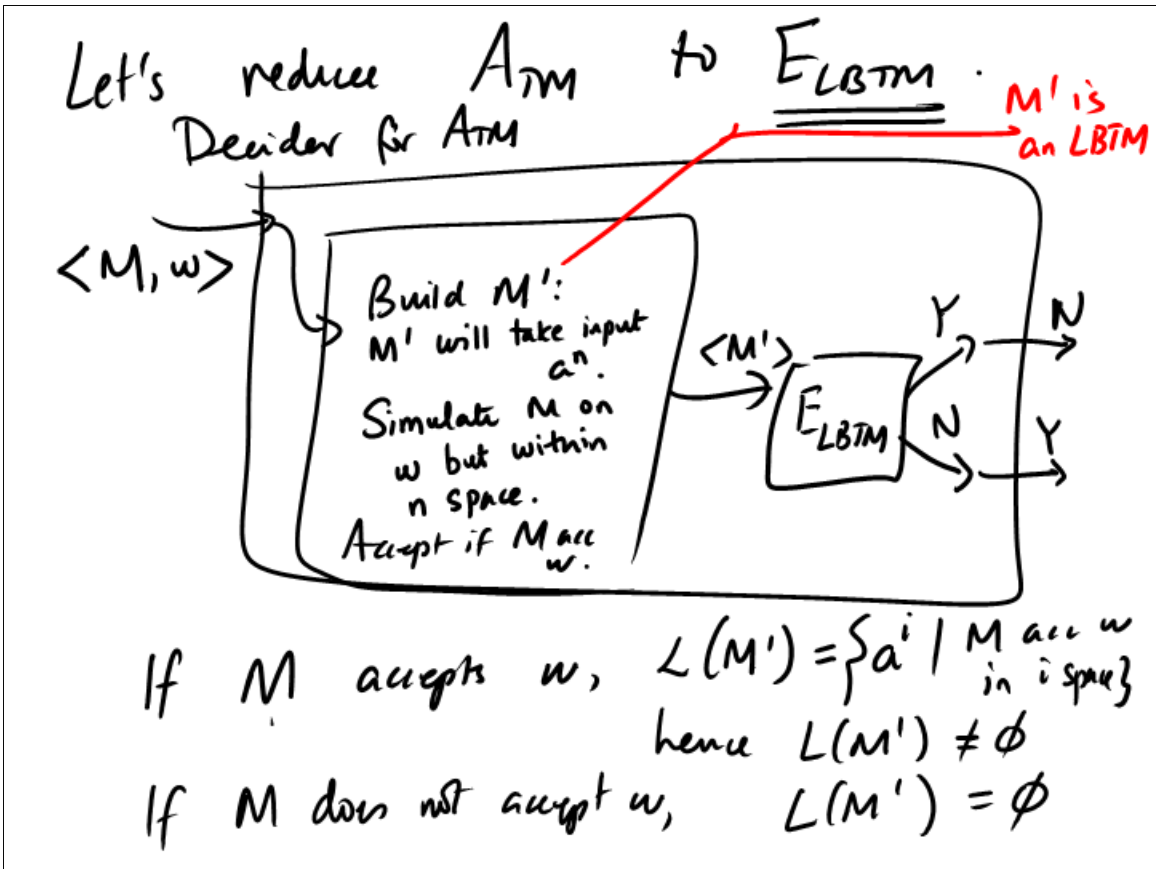 Let's reduce A_TM to E_LBTM.
M' is
an LBTM
Decider for A_TM
<M, w>
Build M':
M' will take input
a^n.
Simulate M on
w but within
n space.
Accept if M acc
w.
<M'>
E_LBTM
Y
N
N
Y
If M accepts w, L(M') = {a^i | M acc w
in i space}
hence L(M') ≠ ϕ
If M does not accept w, L(M') = ϕ